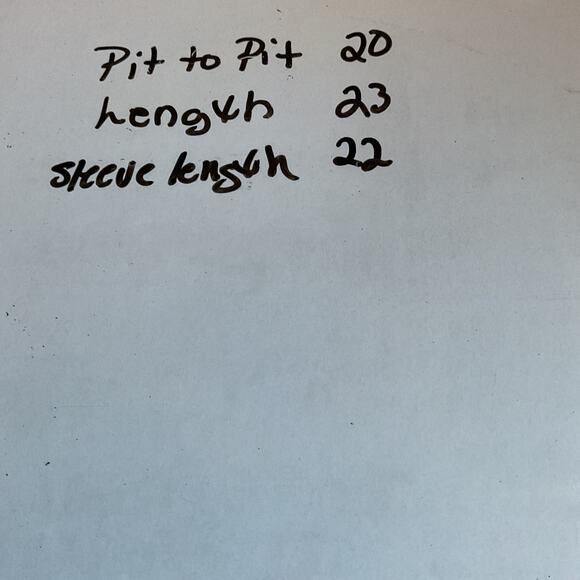 Pit to Pit 20
Length 23
Sleeve length 22